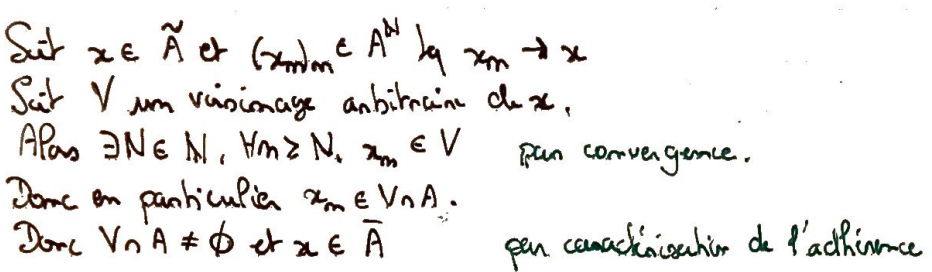 Soit x ∈ Ã et (xₙ)ₙ ∈ A^ℕ tq xₙ → x
Soit V un voisinage arbitraire de x.
Alors ∃N ∈ ℕ, ∀n ≥ N, xₙ ∈ V par convergence.
Donc en particulier xₙ ∈ V∩A.
Donc V∩A ≠ ∅ et x ∈ Ā par caractérisation de l'adhérence